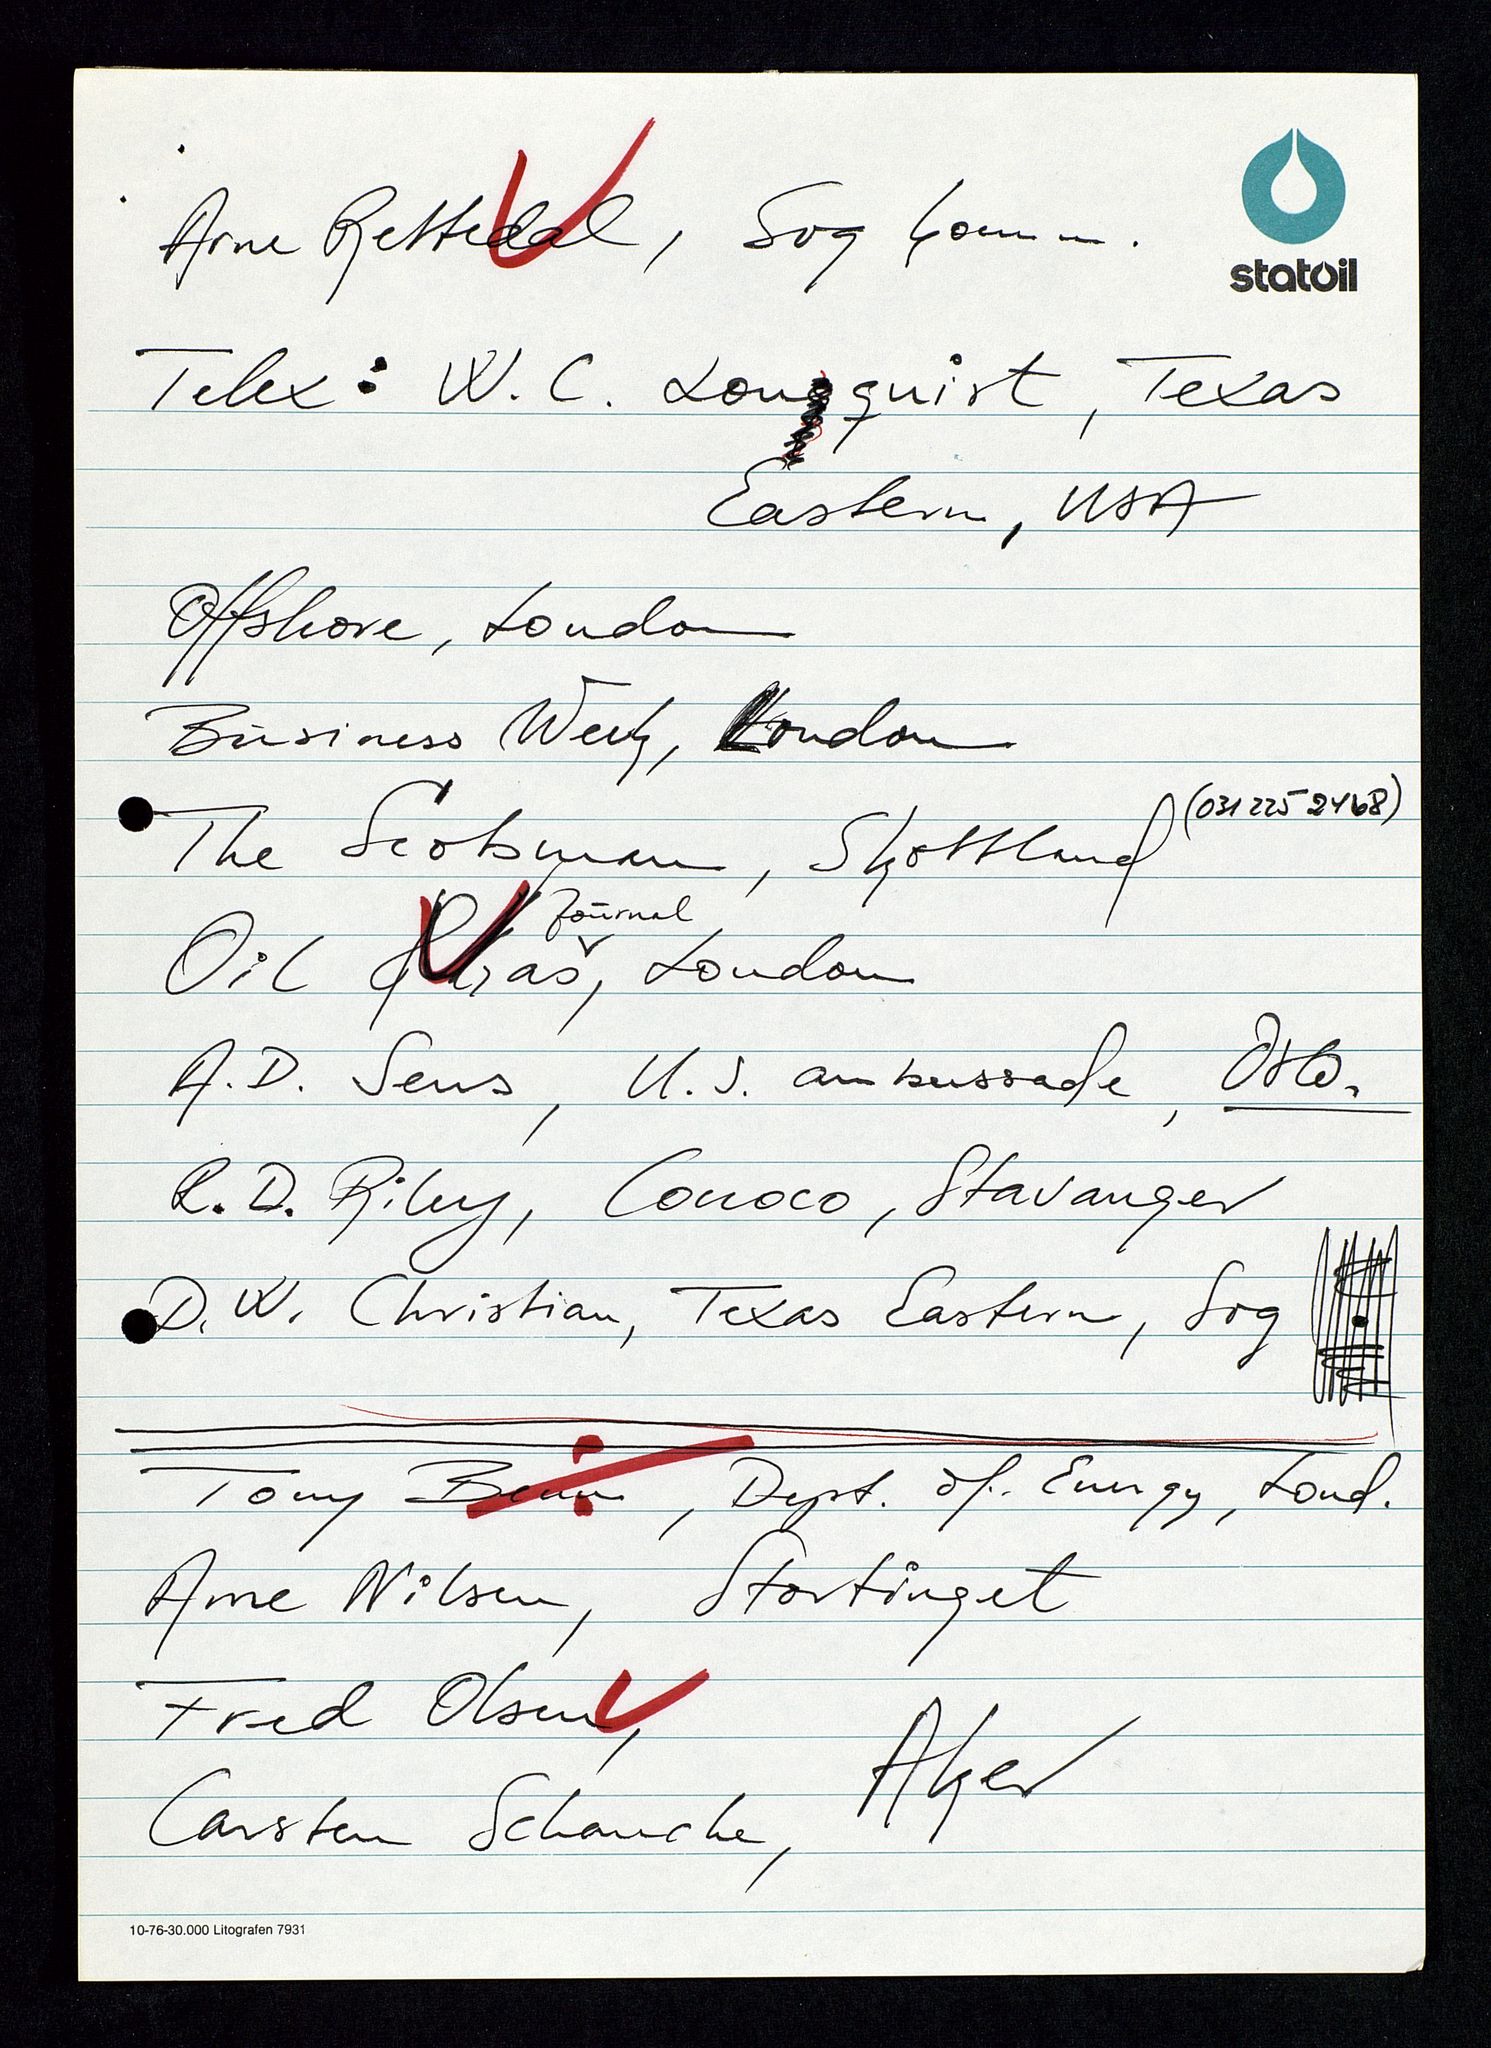 Arne Rettedal, Svg komm.
statoil
Telex: W. C. Lonquist, Texas
Eastern, USA
Offshore, London
Business Week, London
The Scotsman, Skottland (031 225 2468)
Journal
Oil & Gas, London
A. D. Sens, U.S. ambassade, Oslo.
R. D. Riley, Conoco, Stavanger
D. W. Christian, Texas Eastern, Svg
Tony Benn, Dept. of. Energy, Lond.
Arne Nilsen, Stortinget
Fred Olsen,
Aker
Carsten Schanche,
10-76-30.000 Litografen 7931